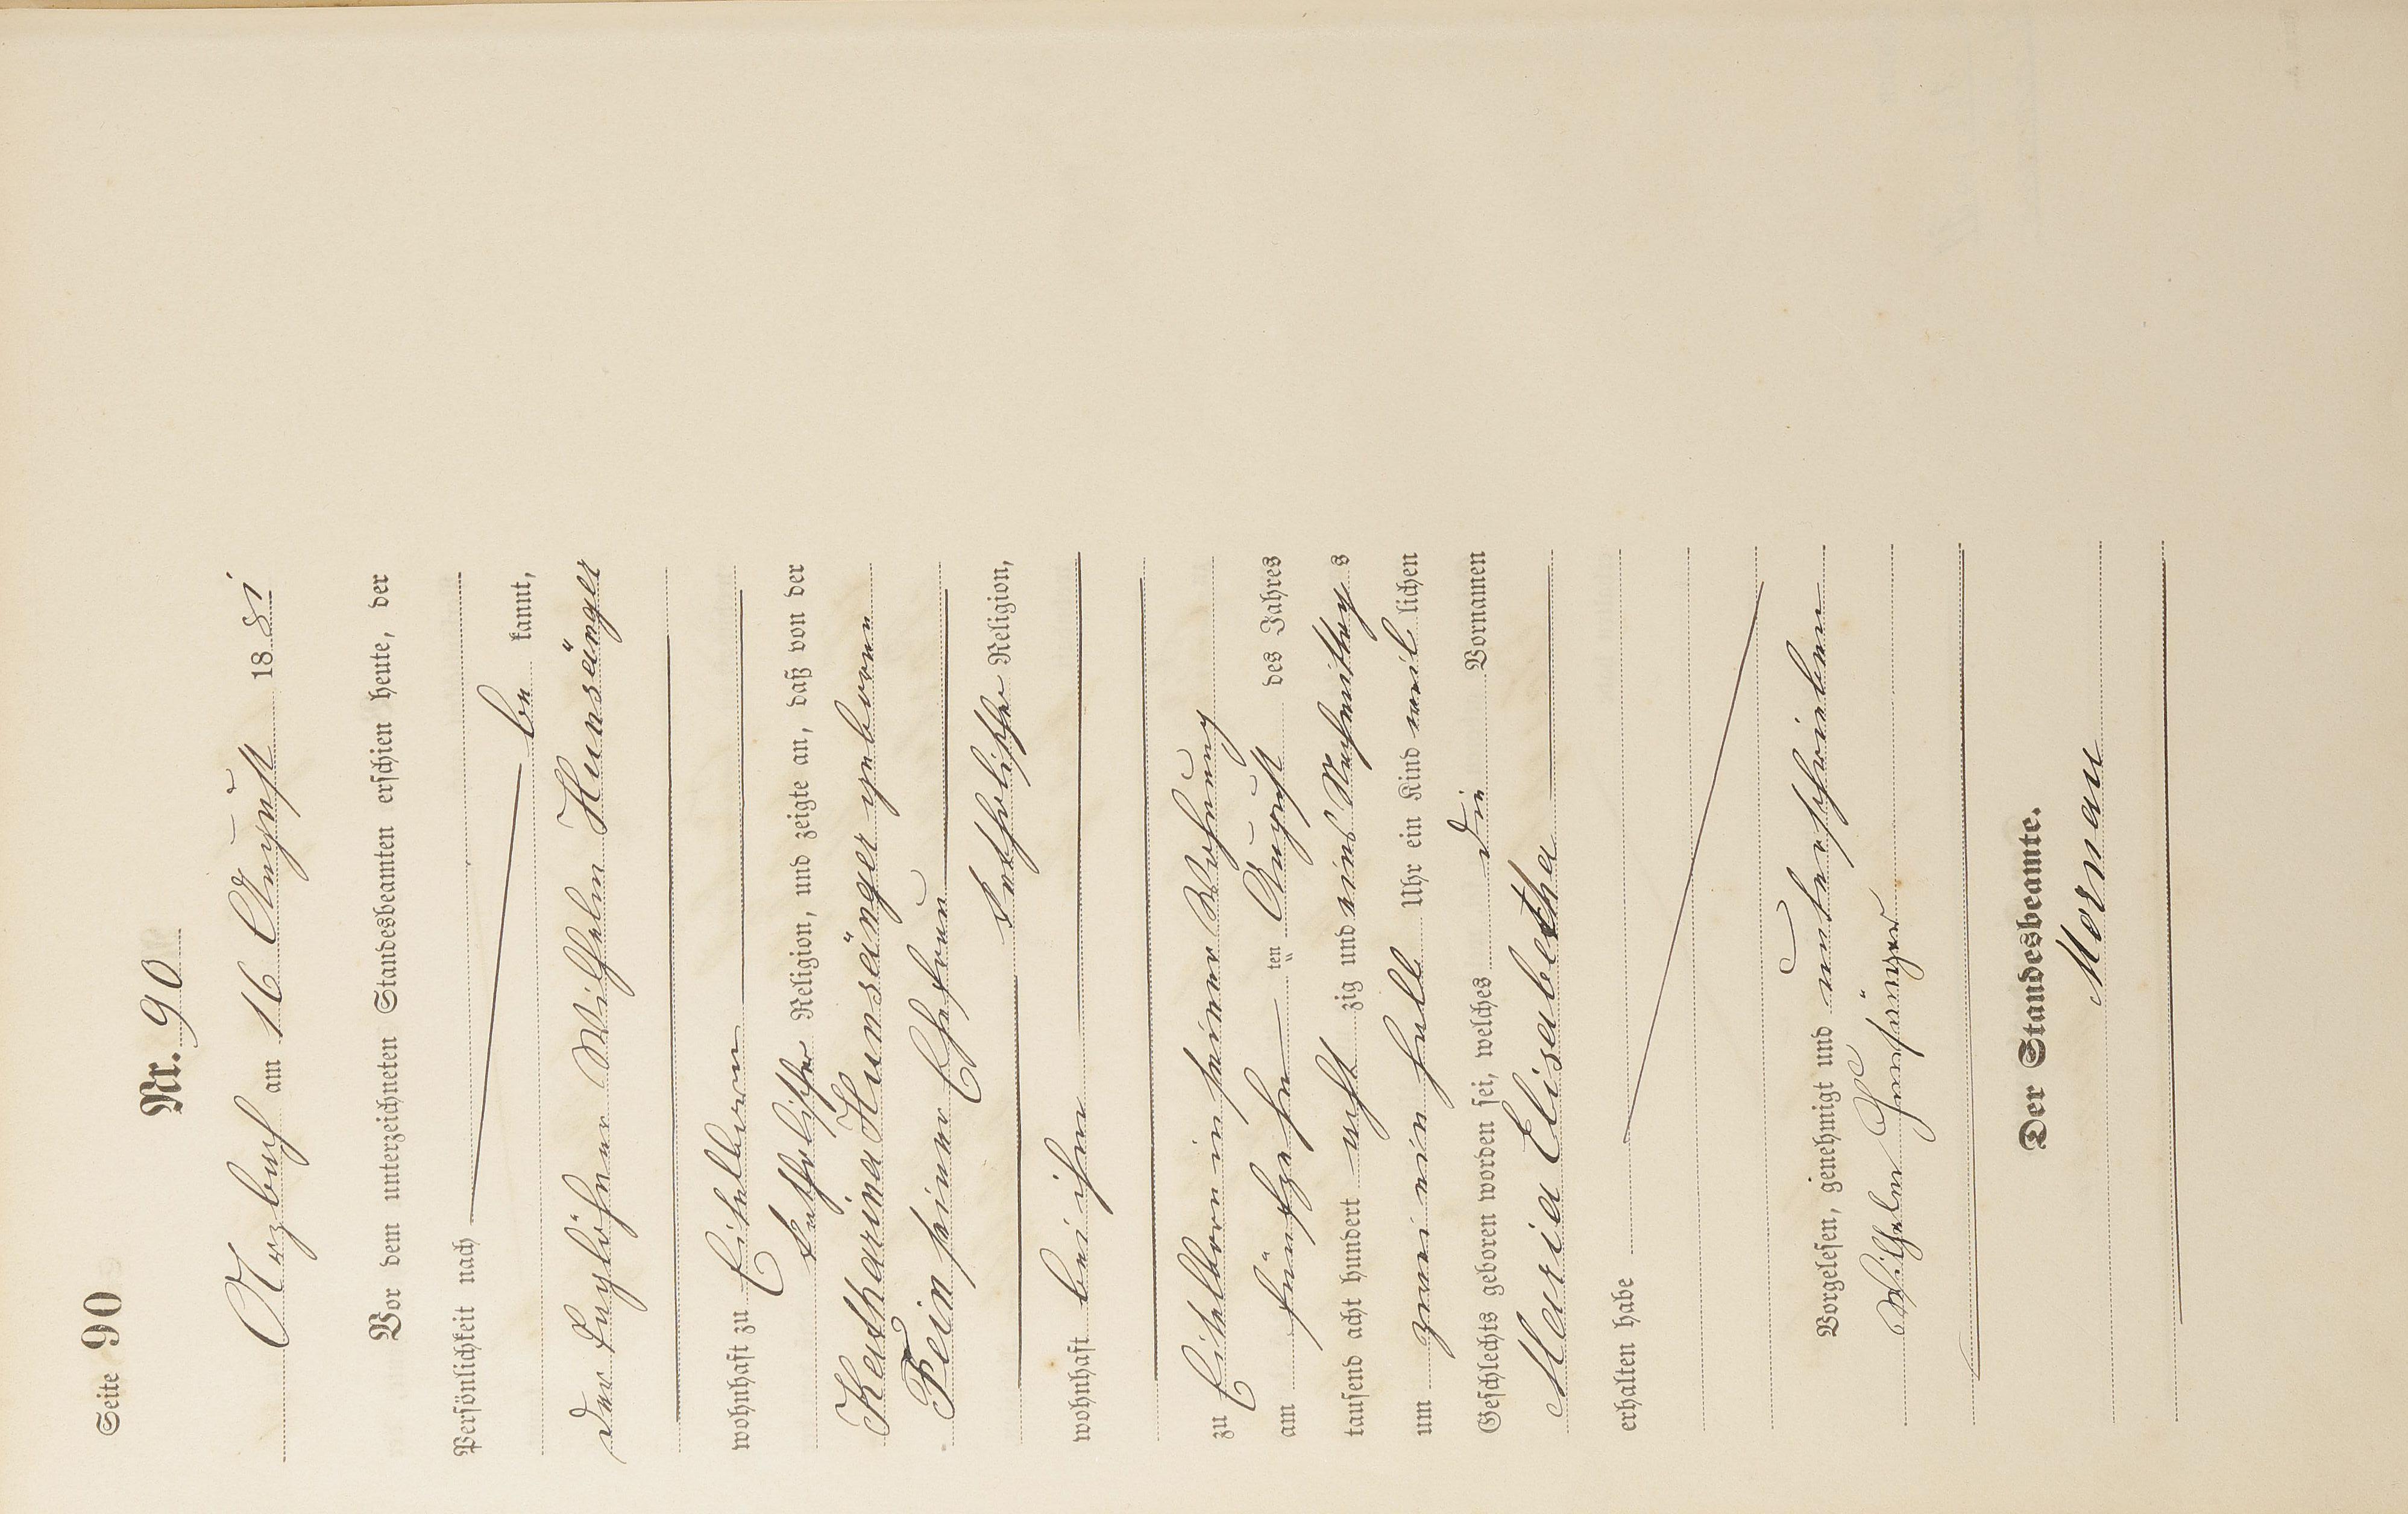 Seite 90
Nr. 90
Arzbach am 16 August 1881
Vor dem unterzeichneten Standesbeamten erschien heute, der
Persönlichkeit nach
be kannt,
der Taglöhner Wilhelm Hunsänger
wohnhaft zu Eitelborn
katholischer Religion, und zeigte an, daß von der
Katharina Hunsänger geborenen
Bein seiner Ehefrau
katholischer Religion,
wohnhaft bei ihm
zu Eitelborn in seiner Wohnung
am fünfzehn ten August des Jahres
tausend acht hundert acht zig und eins Nachmittag s
um zwei ein halb Uhr ein Kind weib lichen
Geschlechts geboren worden sei, welches die Vornamen
Maria Elisabetha
erhalten habe
Vorgelesen, genehmigt und unterschrieben
Wilhelm Hunsänger
Der Standesbeamte.
Mernau